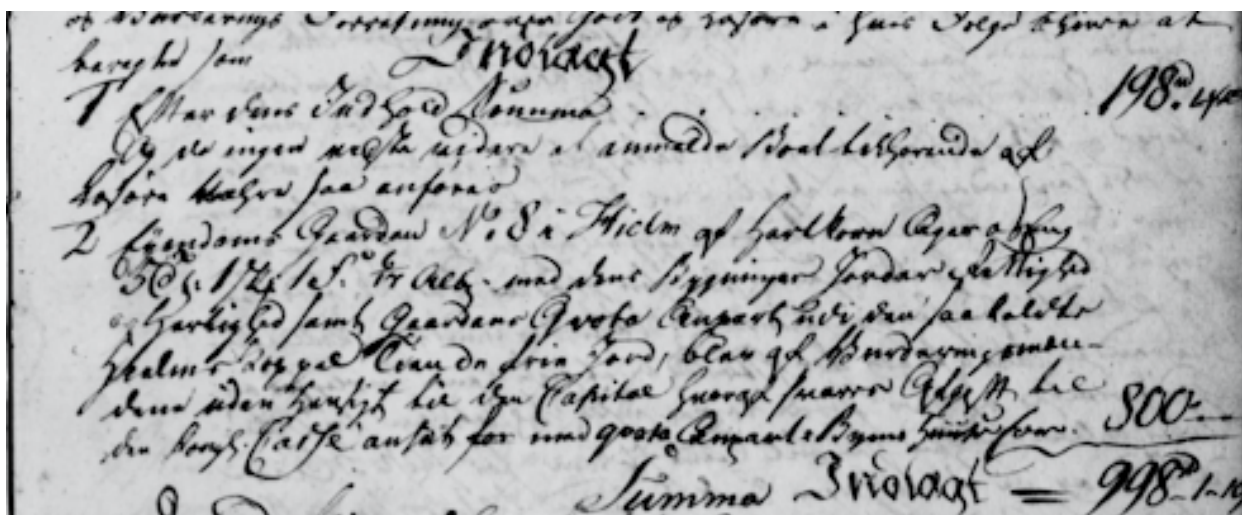 og Vurderings Forretning over Godz og Løsøre i hvis Følge bliver at
beregne som Indtægt
1 Efter dens Indhold Summa . . . 198
Og da ingen viste videre at anmelde Boet tilhørende af
Løsøre Wahre saa anføres
2 Eyendoms Gaarden No 8 i Hielm af Hartkorn Ager og Eng
med dens Bygninger Jorder Rettighed
og Herlighed samt Gaardens Qvota Anpart udi den saa kaldte
Hielms Koppel Tiende frie Jord, blev af Vurderingsmæn-
dene uden Hensigt til den Capital hvoraf svares Afgift til
den Kongl. Casse ansat for med qvota Anpart i Byens 800
Summa Indtægt = 998